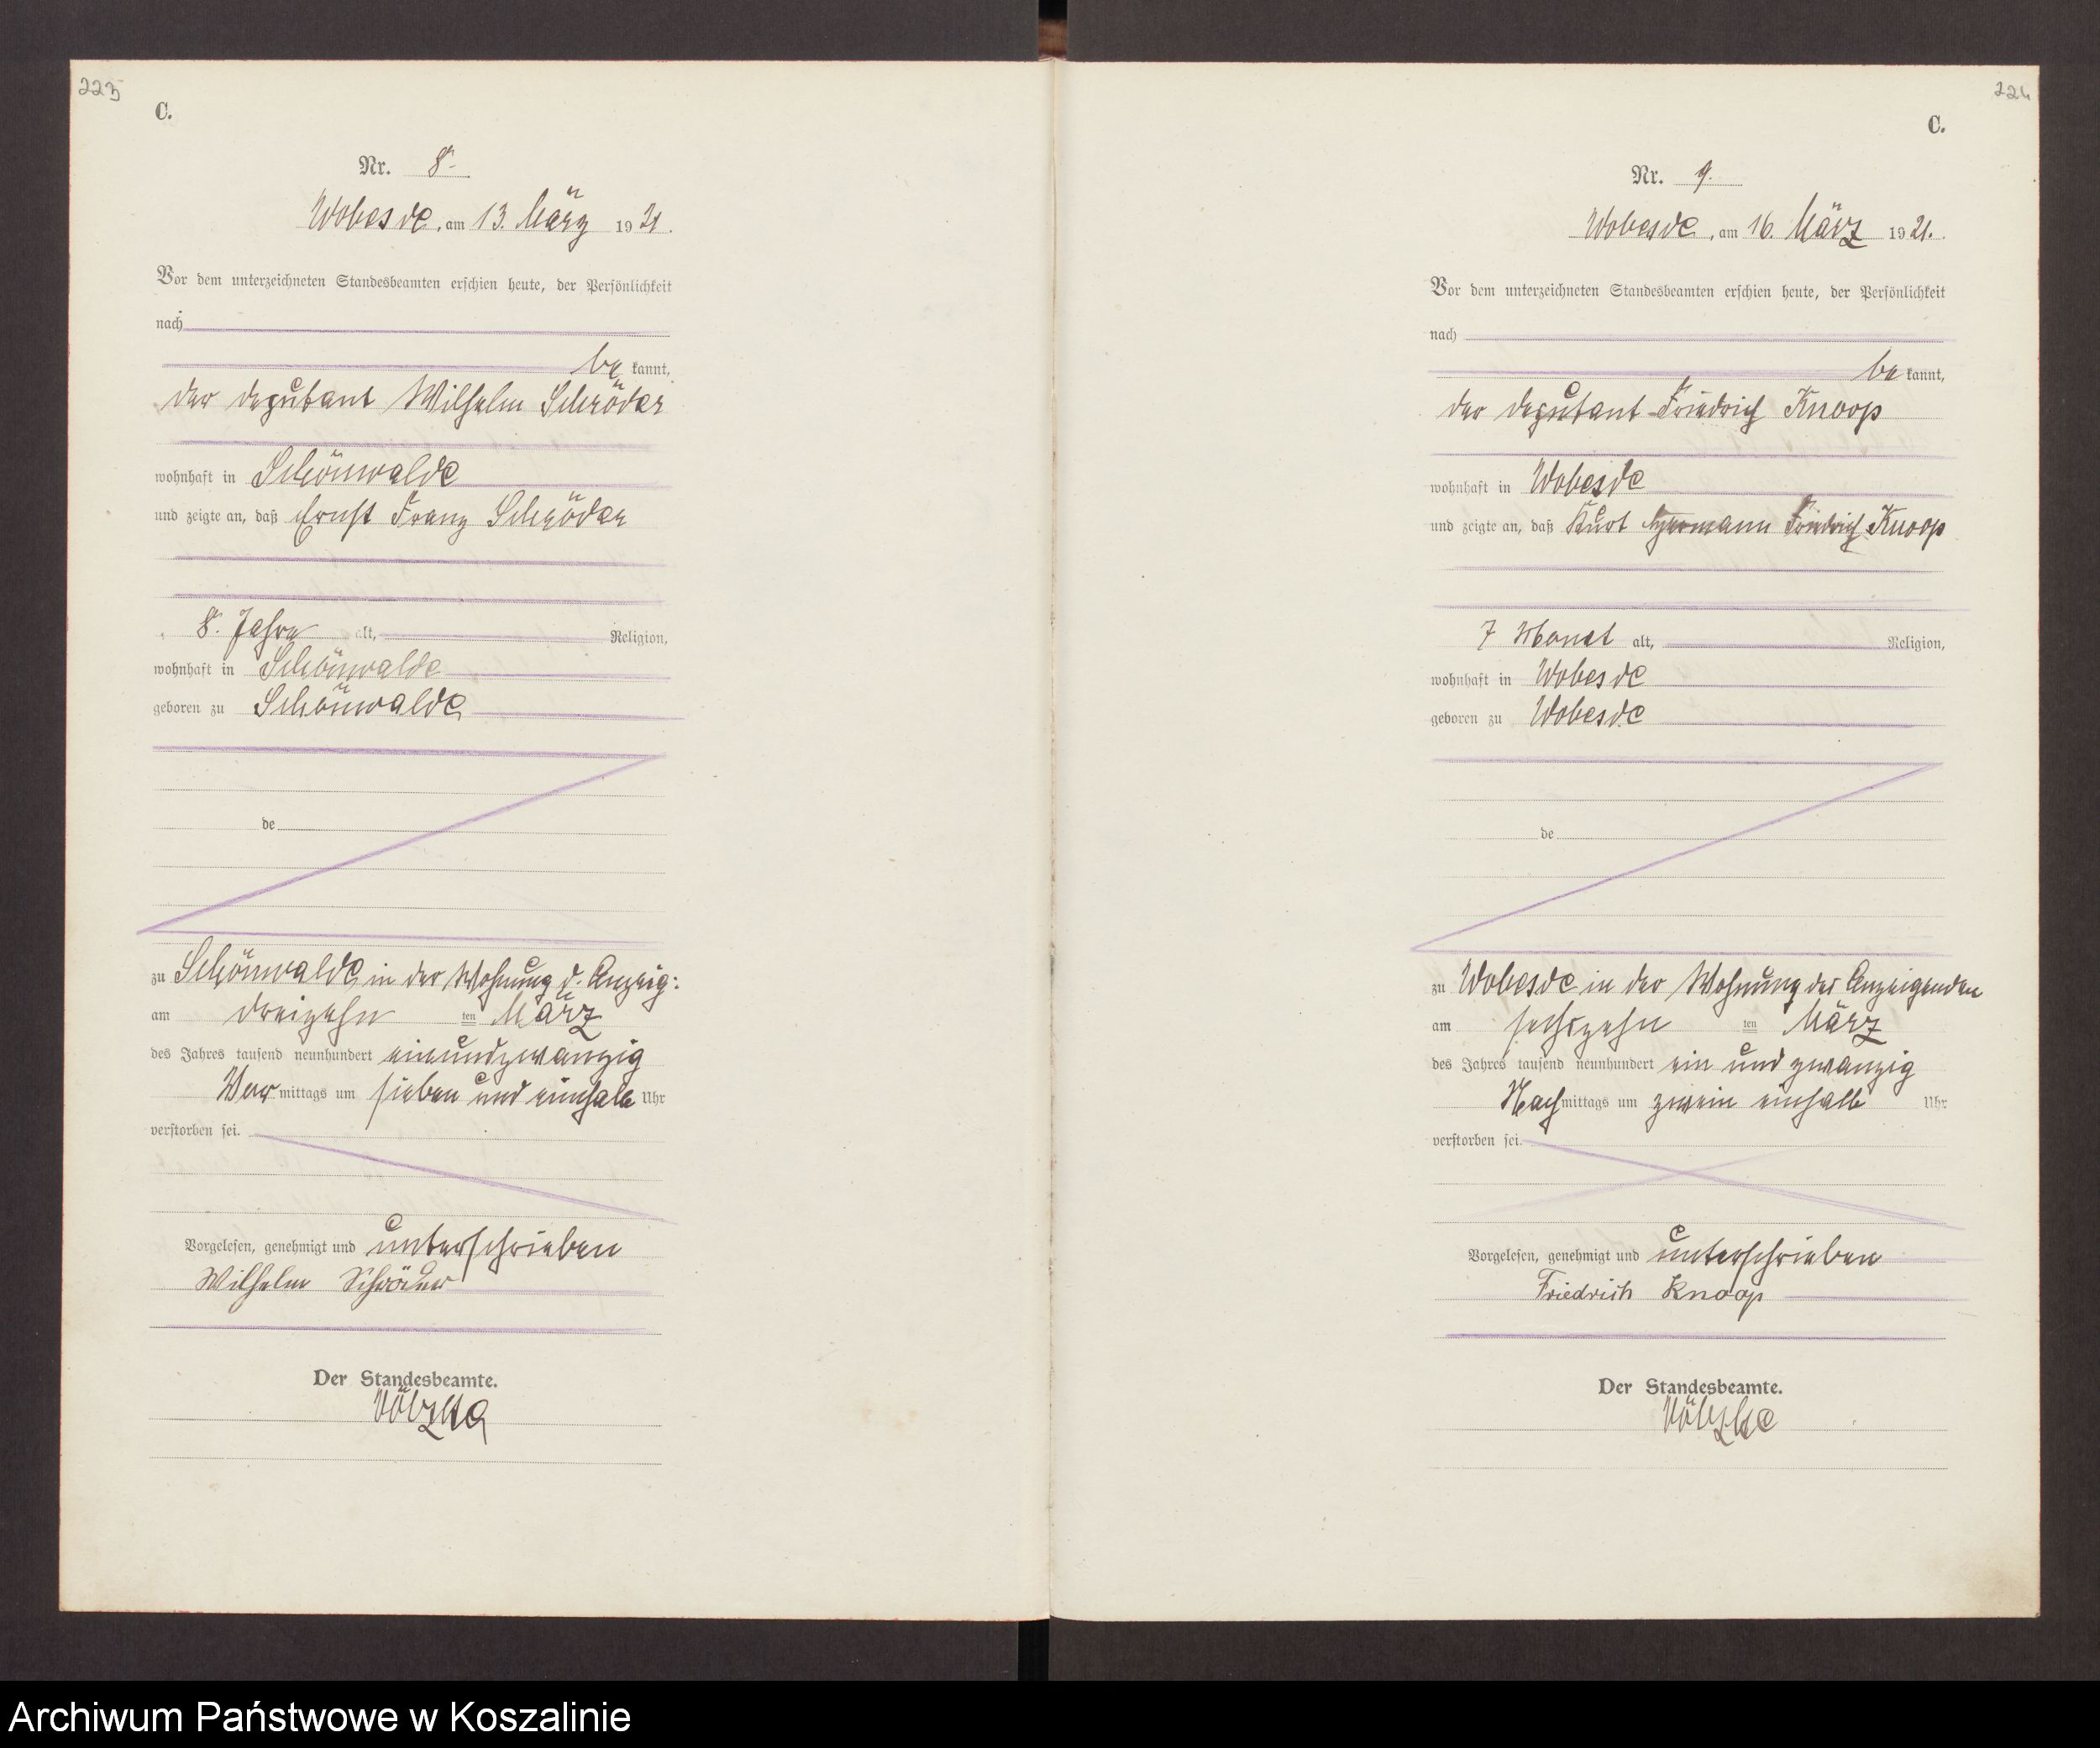 223
C.
Nr. 8.
Wobesde, am 13. März 1921.
Vor dem unterzeichneten Standesbeamten erschien heute, der Persönlichkeit
nach
be kannt,
der Deputant Wilhelm Schröder
wohnhaft in Schönwalde
und zeigte an, daß Ernst Franz Schröder
8. Jahre alt, Religion,
wohnhaft in Schönwalde
geboren zu Schönwalde
de
zu Schönwalde in der Wohnung d. Anzeig:
am dreizehn ten März
des Jahres tausend neunhundert einundzwanzig
Vor mittags um sieben und einhalb Uhr
verstorben sei.
Vorgelesen, genehmigt und unterschrieben
Wilhelm Schröder
Der Standesbeamte.
224
C.
Nr. 9.
Wobesde, am 16. März 1921.
Vor dem unterzeichneten Standesbeamten erschien heute, der Persönlichkeit
nach
be kannt,
der Deputant Friedrich Knoop
wohnhaft in Wobesde
und zeigte an, daß Kurt Hermann Friedrich Knoop
7 Monat alt, Religion,
wohnhaft in Wobesde
geboren zu Wobesde
de
zu Wobesde in der Wohnung des Anzeigenden
am sechszehn ten März
des Jahres tausend neunhundert ein und zwanzig
Nach mittags um zwein einhalb Uhr
verstorben sei.
Vorgelesen, genehmigt und unterschrieben
Friedrich Knoop
Der Standesbeamte.
Archiwum Państwowe w Koszalinie